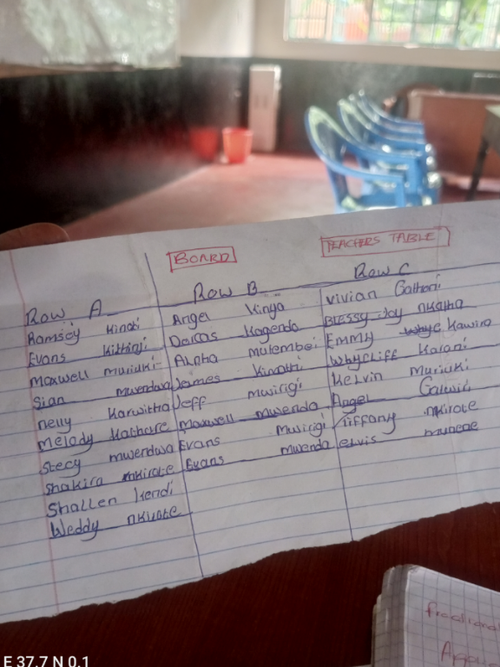 BOARD
TEACHERS TABLE
Row A
Ramsey Kinoti
Evans Kithinji
Maxwell muriuki
Sian mwendwa
nelly Karwitha
Melody Kathure
Stecy mwendwa
Shakira nkirote
Shallen Kendi
Weddy nkirote
Row B
Angel Kinya
Dorcas Kagendo
Alpha mutembei
James Kinothi
Jeff mwirigi
Maxwell mwenda
Evans Mwirigi
Evans mwenda
Row C
Vivian Gathoni
Blessy Joy nkatha
Emmy Kawira
Whycliff Karani
Kelvin Muriuki
Angel
Tiffany nkirote
elvis
fractional
E 37.7 N 0.1